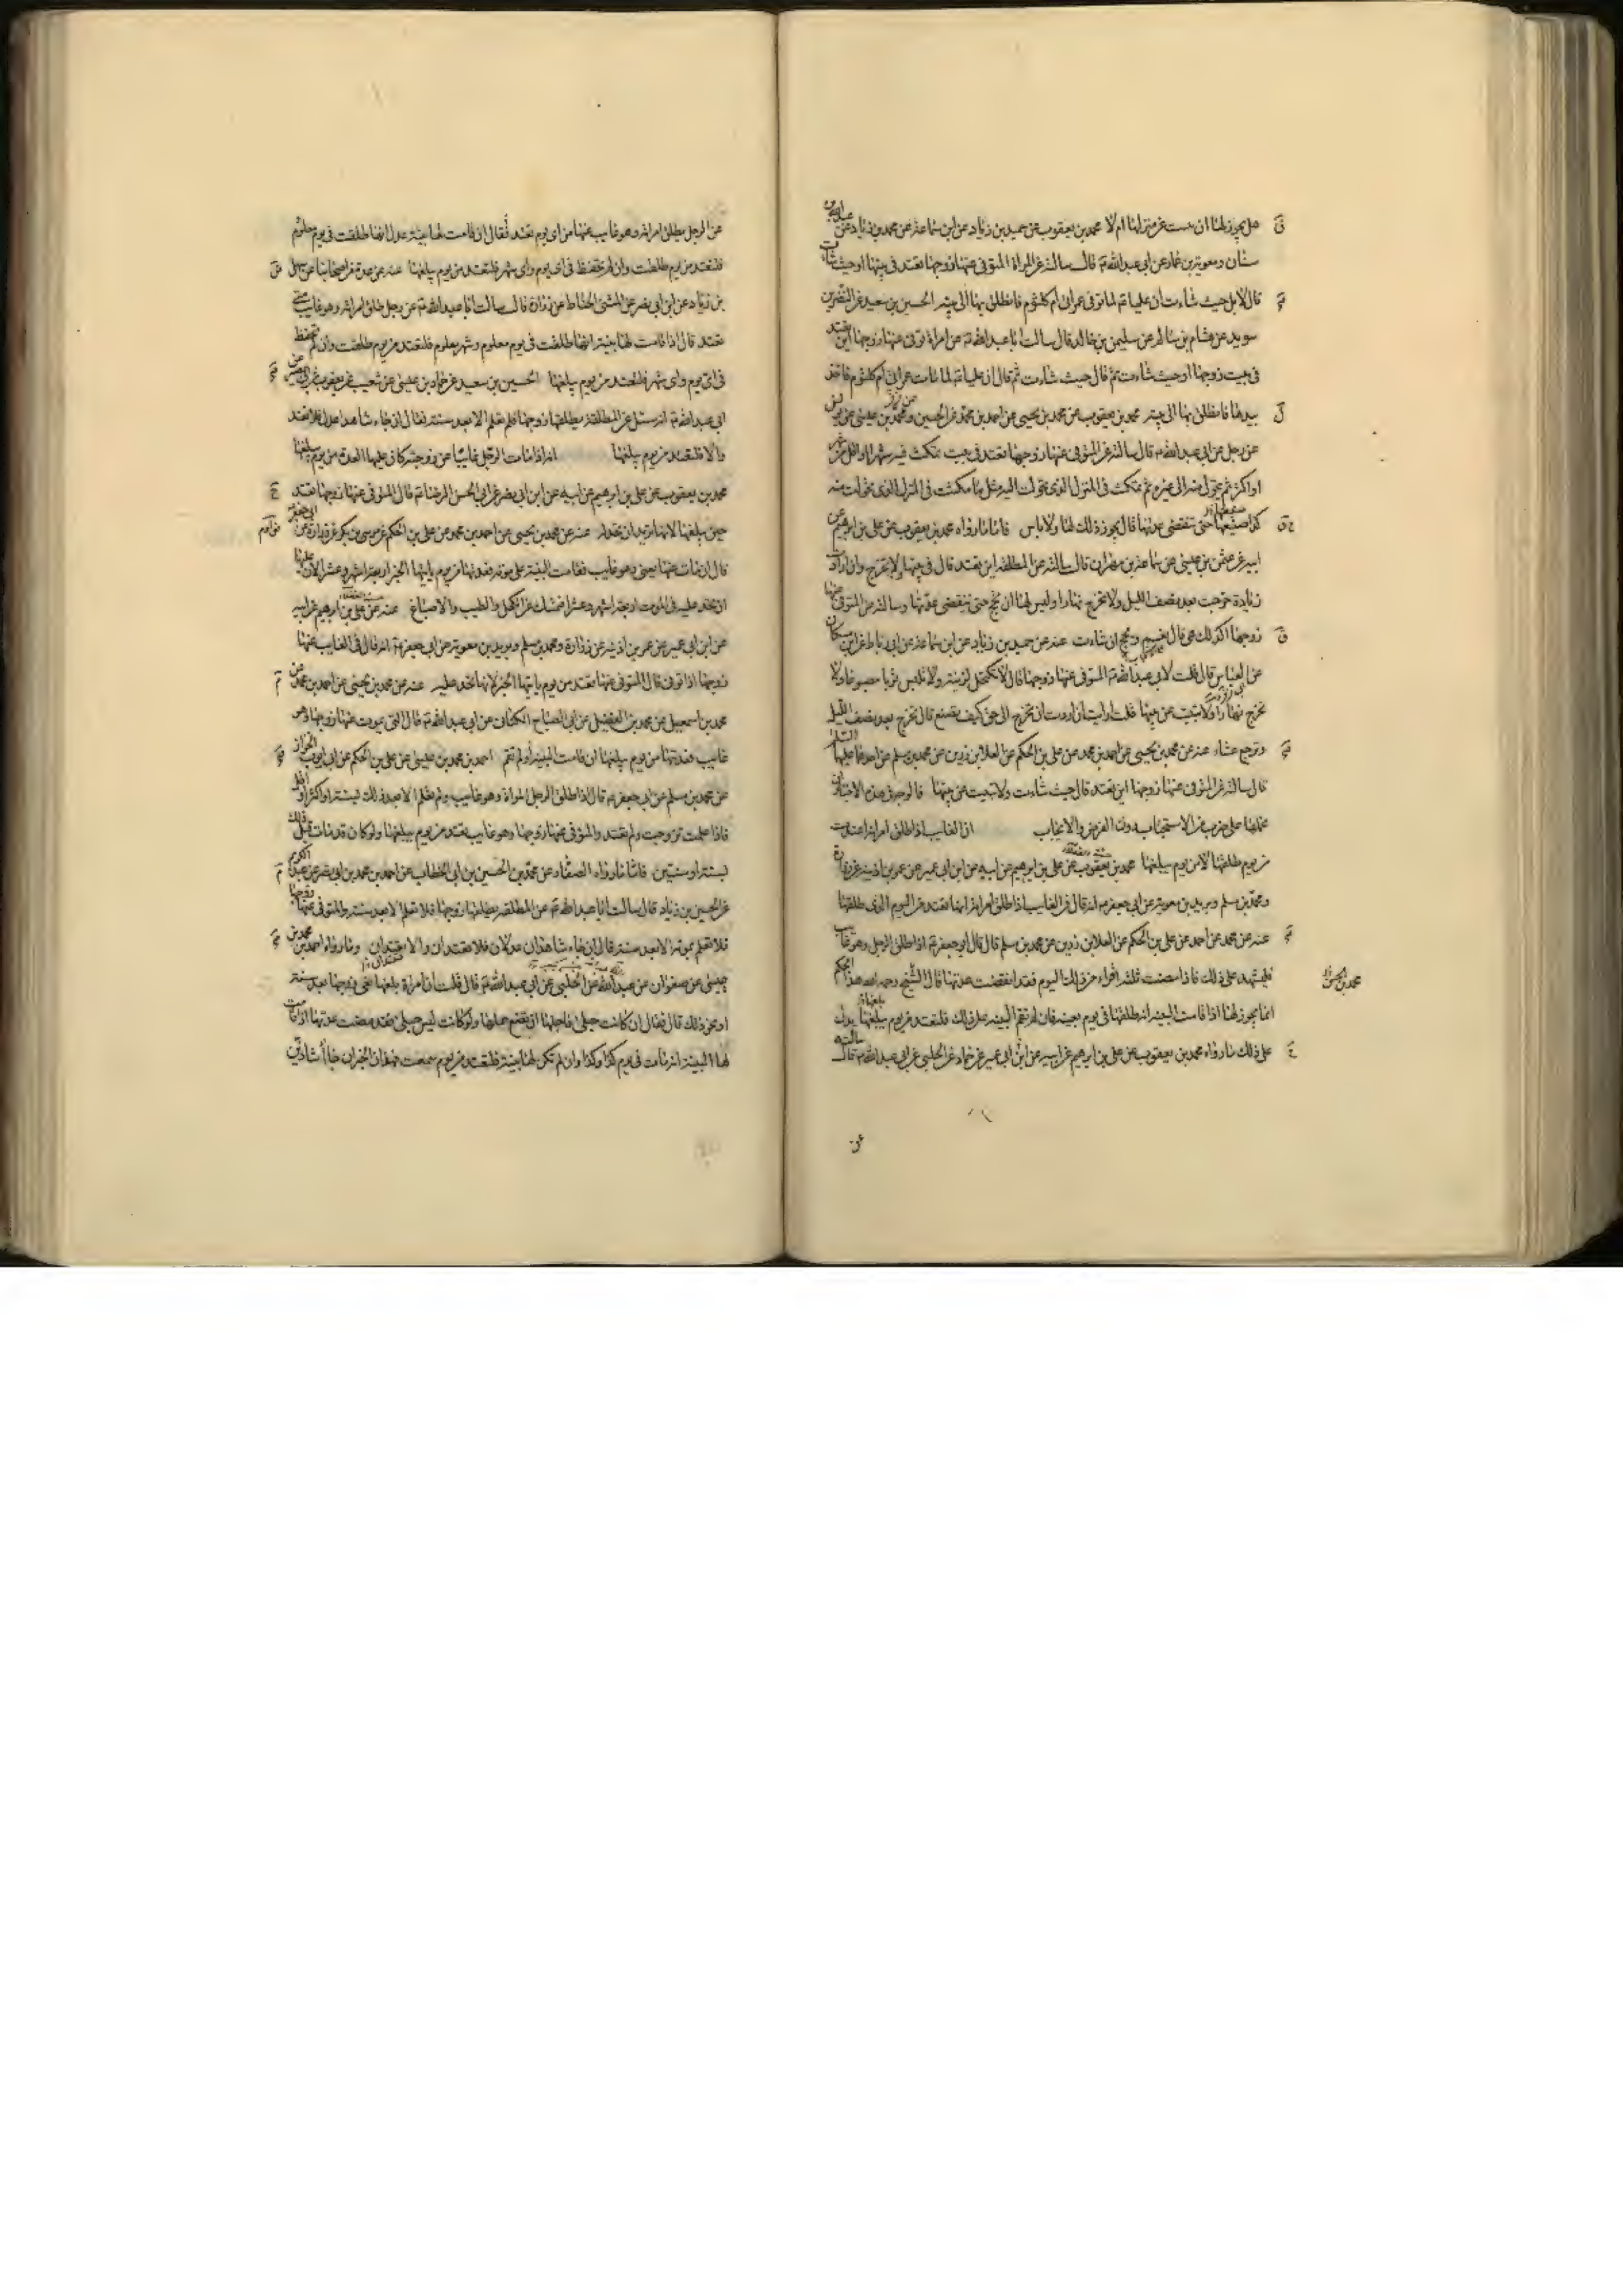 هل يجوز لها ان تمت عزمتم لها ام لا محمد بن يعقوب عن حميد بن زياد عن ابن سماعة عن محمد بن زياد عن عبدالله بن
سنان ومعوية بن عمار عن ابي عبدالله ع قال سالته عن المراة المتوفى عنها زوجها تعتد في بيتها او حيث شاءت
قال لا بل حيث شاءت ان عليا ع لما توفى عمر اتى ام كلثوم فانطلق بها الى بيته الحسين بن سعيد عن النضر بن
سويد عن هشام بن سالم عن سليمن بن خالد قال سالت ابا عبدالله ع عن امراة توفى عنها زوجها اين تعتد
في بيت زوجها او حيث شاءت ثم قال حيث شاءت ثم قال ان عليا ع لما مات عمر اتى ام كلثوم فاخذ
بيدها فانطلق بها الى بيته محمد بن يعقوب عن محمد بن يحيى عن احمد بن محمد عن الحسين ومحمد بن عيسى عن يونس
عن رجل عن ابي عبدالله ع قال سالته عن المتوفى عنها زوجها تعتد في بيت تمكث فيه شهرا او اقل من شهر
او اكثر ثم تحول منه الى غيره ثم تمكث في المنزل الذي تحولت اليه مثل ما مكثت في المنزل الذي تحولت منه
كذا صنيعها حتى تنقضى عدتها قال يجوز ذلك لها ولا باس فاما ما رواه محمد بن يعقوب عن على بن ابرهيم عن
ابيه عن عثمن بن عيسى عن سماعة بن مهران قال سالته عن المطلقة اين تعتد قال في بيتها لا تخرج وان ارادت
زيادة خرجت بعد نصف الليل ولا تخرج نهارا وليس لها ان تحج حتى تنقضى عدتها وسالته عن المتوفى عنها
زوجها اكذلك هي قال نعم وتحج ان شاءت عنه عن حميد بن زياد عن ابن سماعة عن ابن رباط عن ابن مسكان
عن ابي العباس قال قلت لابي عبدالله ع المتوفى عنها زوجها قال لا تكتحل لزينة ولا تلبس ثوبا مصبوغا ولا
تخرج نهارا ولا تبيت عن بيتها قلت ارايت ان ارادت ان تخرج الى حق كيف تصنع قال تخرج بعد نصف الليل
وترجع عشاء عنه عن محمد بن يحيى عن احمد بن محمد عن على بن الحكم عن العلا بن رزين عن محمد بن مسلم عن احدهما عليهما السلام
قال سالته عن المتوفى عنها زوجها اين تعتد قال حيث شاءت ولا تبيت عن بيتها فالوجه في هذه الاخبار ان
نحملها على ضرب من الاستحباب دون الفرض والايجاب ان الغايب اذا طلق امراته اعتدت
من يوم طلقها لا من يوم يبلغها محمد بن يعقوب عن على بن ابرهيم عن ابيه عن ابن ابي عمير عن عمر بن اذينة عن زرارة
ومحمد بن مسلم وبريد بن معوية عن ابي جعفر ع انه قال في الغايب اذا طلق امراته انها تعتد من اليوم الذي طلقها
عنه عن محمد عن احمد عن على بن الحكم عن العلا بن رزين عن محمد بن مسلم قال قال ابو جعفر ع اذا طلق الرجل وهو غايب
فليشهد على ذلك فاذا مضت ثلثة اقراء من ذلك اليوم فقد انقضت عدتها قال الشيخ رحمه الله هذا الحكم
محمد بن الحسن
انما يجوز لها اذا قامت البينة انه طلقها في يوم بعينه فان لم تقم البينة على ذلك فلتعتد من يوم يبلغها يدل
على ذلك ما رواه محمد بن يعقوب عن على بن ابرهيم عن ابيه عن ابن ابي عمير عن حماد عن الحلبي عن ابي عبدالله ع قال سالته
عن
عن الرجل يطلق امراته وهو غايب عنها من اى يوم تعتد فقال ان قامت لها بينة عدل انها طلقت في يوم معلوم
فلتعتد من يوم طلقت وان لم تحفظ في اى يوم واى شهر فلتعتد من يوم يبلغها عنه عن عدة من اصحابنا عن سهل
بن زياد عن ابن ابي نصر عن المثنى الحناط عن زرارة قال سالت ابا عبدالله ع عن رجل طلق امراته وهو غايب متى
تعتد قال اذا قامت لها بينة انها طلقت في يوم معلوم وشهر معلوم فلتعتد من يوم طلقت وان لم تحفظ
في اى يوم واى شهر فلتعتد من يوم يبلغها الحسين بن سعيد عن حماد بن عيسى عن شعيب عن يعقوب عن ابي بصير عن
ابي عبدالله ع انه سئل عن المطلقة يطلقها زوجها فلم تعلم الا بعد سنة فقال ان جاء شاهدا عدل فلا تعتد
والا فلتعتد من يوم يبلغها انه اذا مات الرجل غايبا عن زوجته كان عليها العدة من يوم يبلغها
محمد بن يعقوب عن على بن ابرهيم عن ابيه عن ابن ابي نصر عن ابي الحسن الرضا ع قال المتوفى عنها زوجها تعتد
حين يبلغها لانها تريد ان تحد له عنه عن محمد بن يحيى عن احمد بن محمد عن على بن الحكم عن موسى بن بكر عن زرارة عن ابي جعفر
قال ان مات عنها يعنى وهو غايب فقامت البينة على موته فعدتها من يوم ياتيها الخبر اربعة اشهر وعشرا لان عليها
ان تحد عليه في الموت اربعة اشهر وعشرا فتمسك عن الكحل والطيب والاصباغ عنه عن على بن ابرهيم عن ابيه
عن ابن ابي عمير عن عمر بن اذينة عن زرارة ومحمد بن مسلم وبريد بن معوية عن ابي جعفر ع انه قال في الغايب عنها
زوجها اذا توفى قال المتوفى عنها تعتد من يوم ياتيها الخبر لانها تحد عليه عنه عن محمد بن يحيى عن احمد بن محمد عن
محمد بن اسمعيل عن محمد بن الفضيل عن ابي الصباح الكناني عن ابي عبدالله ع قال التي يموت عنها زوجها وهو
غايب فعدتها من يوم يبلغها ان قامت البينة او لم تقم احمد بن محمد بن عيسى عن على بن الحكم عن ابي ايوب الخزاز
عن محمد بن مسلم عن ابي جعفر ع قال اذا طلق الرجل المراة وهو غايب ولم تعلم الا بعد ذلك بسنة او اكثر او اقل
فاذا علمت تزوجت ولم تعتد والمتوفى عنها زوجها وهو غايب تعتد من يوم يبلغها ولو كان قد مات قبل ذلك
بسنة او سنتين فاما ما رواه الصفار عن محمد بن الحسين بن ابي الخطاب عن احمد بن محمد بن ابي نصر عن عبد الكريم
عن الحسين بن زياد قال سالت ابا عبدالله ع عن المطلقة يطلقها زوجها فلا تعلم الا بعد سنة والمتوفى عنها زوجها
فلا تعلم بموته الا بعد سنة قال ان جاء شاهدان عدلان فلا تعتدان والا تعتدان وما رواه احمد بن محمد بن
عيسى عن صفوان عن عبدالله عن الحلبي عن ابي عبدالله ع قال قلت له امراة بلغها نعى زوجها بعد سنة
او نحو ذلك قال فقال ان كانت حبلى فاجلها ان تضع حملها ولو كانت ليس حبلى فقد مضت عدتها اذا قامت
لها البينة انه مات في يوم كذا وكذا وان لم تكن لها بينة فلتعتد من يوم سمعت فهذان الخبران جاءا شاذين